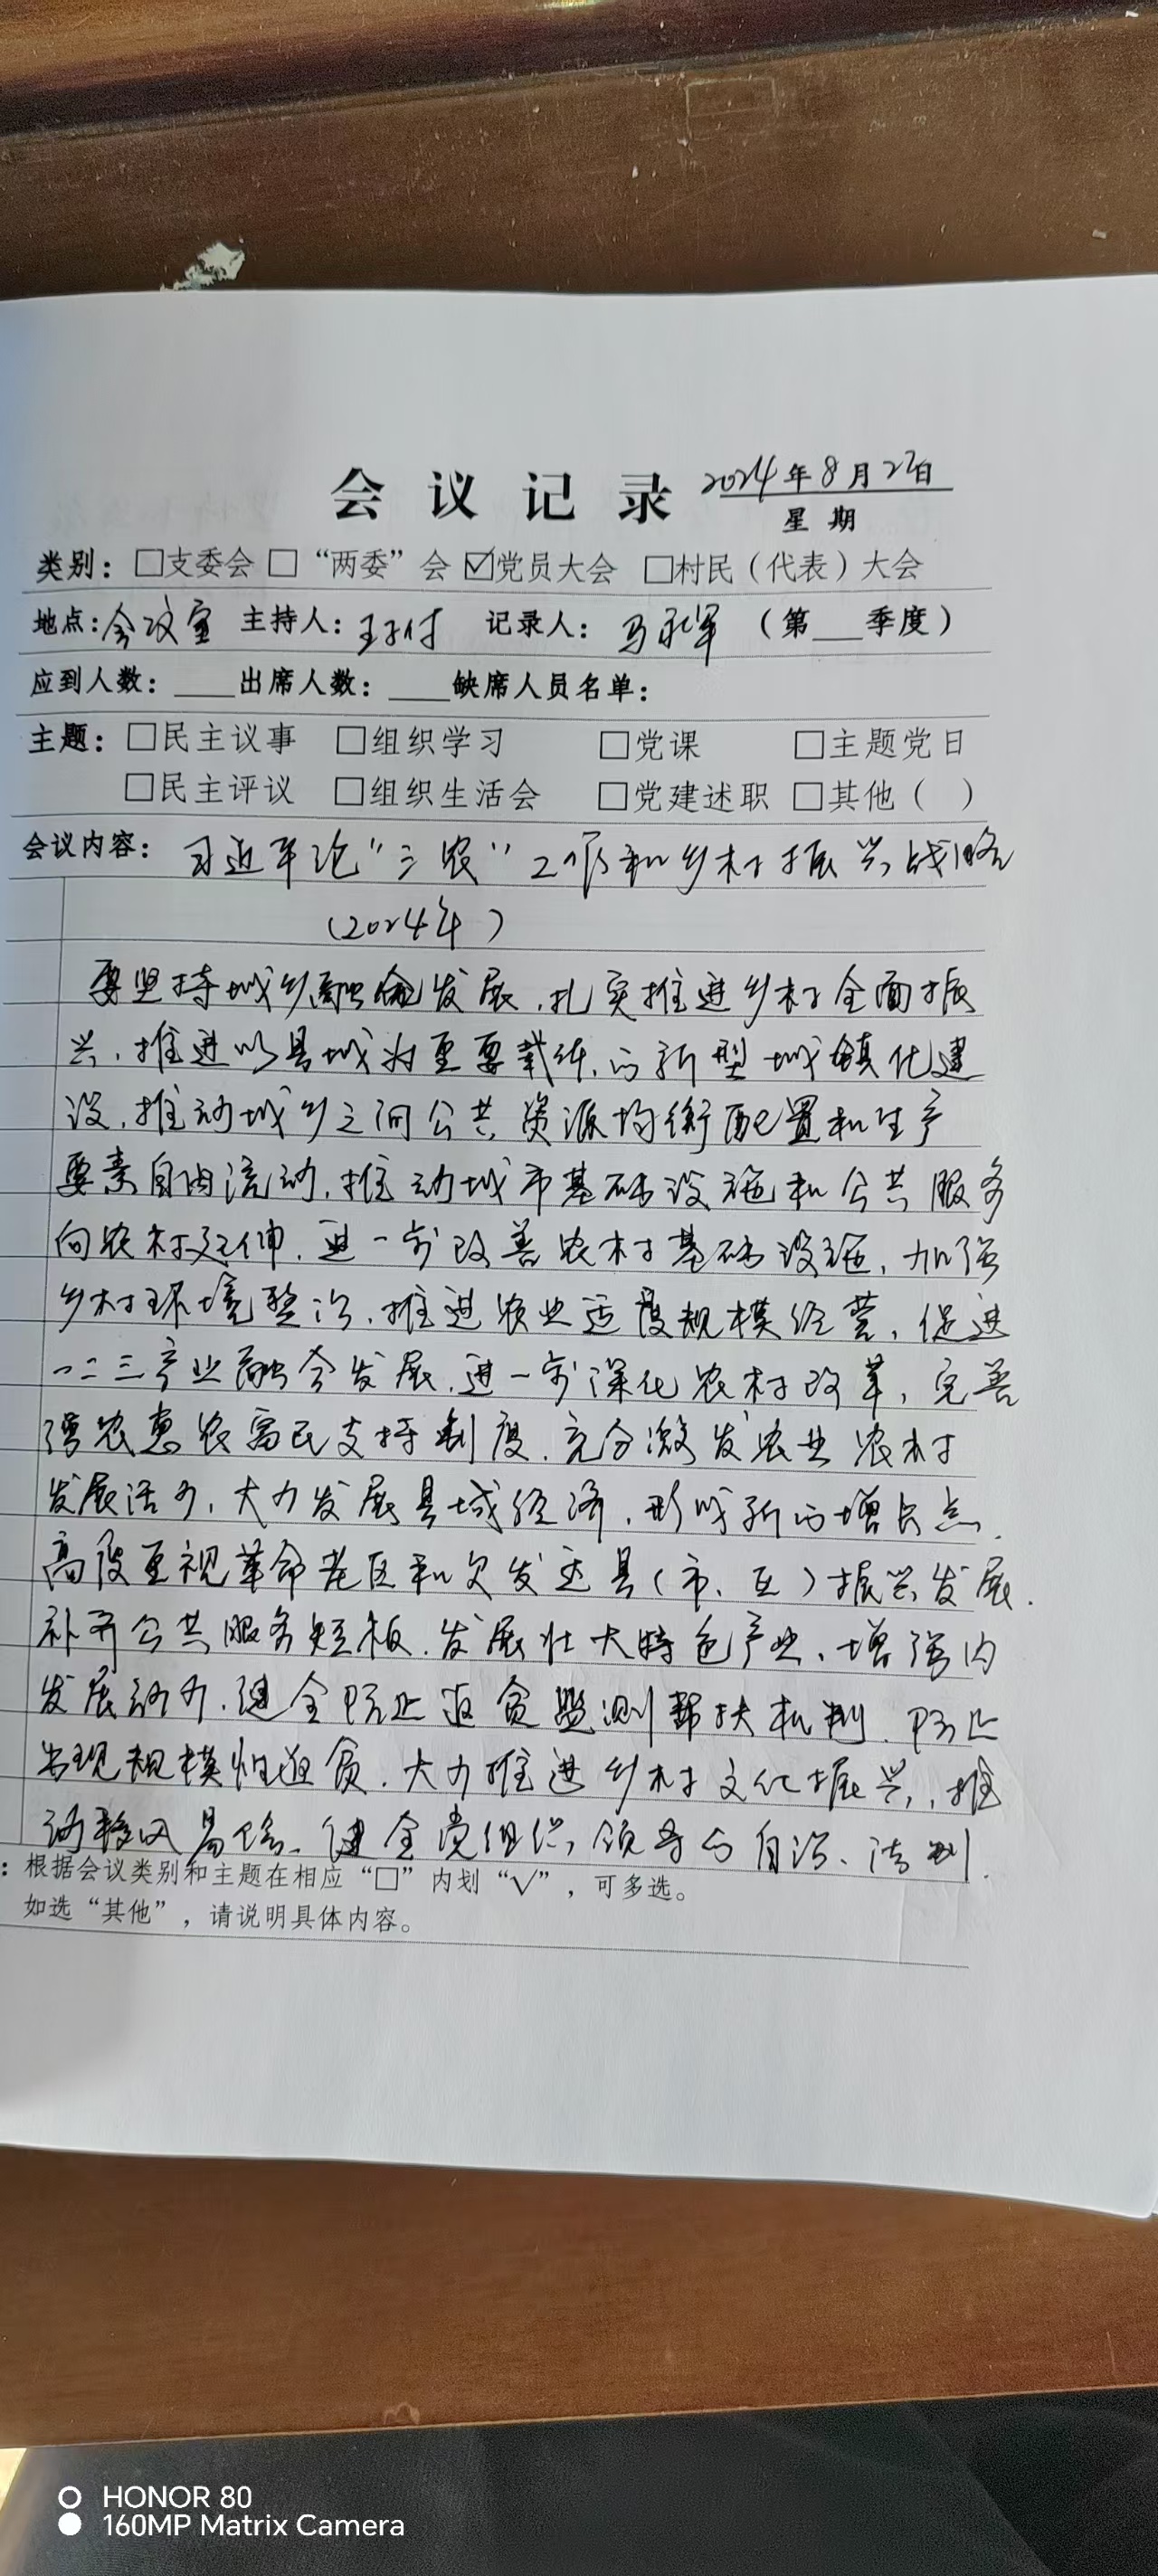 会议记录 2024年8月22日
星期
类别：□支委会 □“两委”会 ☑党员大会 □村民（代表）大会
地点：会议室 主持人：王付 记录人：马永军 （第___季度）
应到人数：____出席人数：____缺席人员名单：
主题：□民主议事 □组织学习 □党课 □主题党日
□民主评议 □组织生活会 □党建述职 □其他（ ）
会议内容：习近平论“三农”工作和乡村振兴战略
（2024年）
要坚持城乡融合发展，扎实推进乡村全面振
兴，推进以县城为重要载体的新型城镇化建
设，推动城乡之间公共资源均衡配置和生产
要素自由流动，推动城市基础设施和公共服务
向农村延伸，进一步改善农村基础设施，加强
乡村环境整治，推进农业适度规模经营，促进
一二三产业融合发展，进一步深化农村改革，完善
强农惠农富民支持制度，充分激发农业农村
发展活力，大力发展县域经济，形成新的增长点，
高度重视革命老区和欠发达县（市、区）振兴发展，
补齐公共服务短板，发展壮大特色产业，增强内
发展动力，健全防止返贫监测帮扶机制，防止
出现规模性返贫，大力推进乡村文化振兴，推
动移风易俗、健全党组织领导的自治、法制
：根据会议类别和主题在相应“□”内划“√”，可多选。
如选“其他”，请说明具体内容。
HONOR 80
160MP Matrix Camera